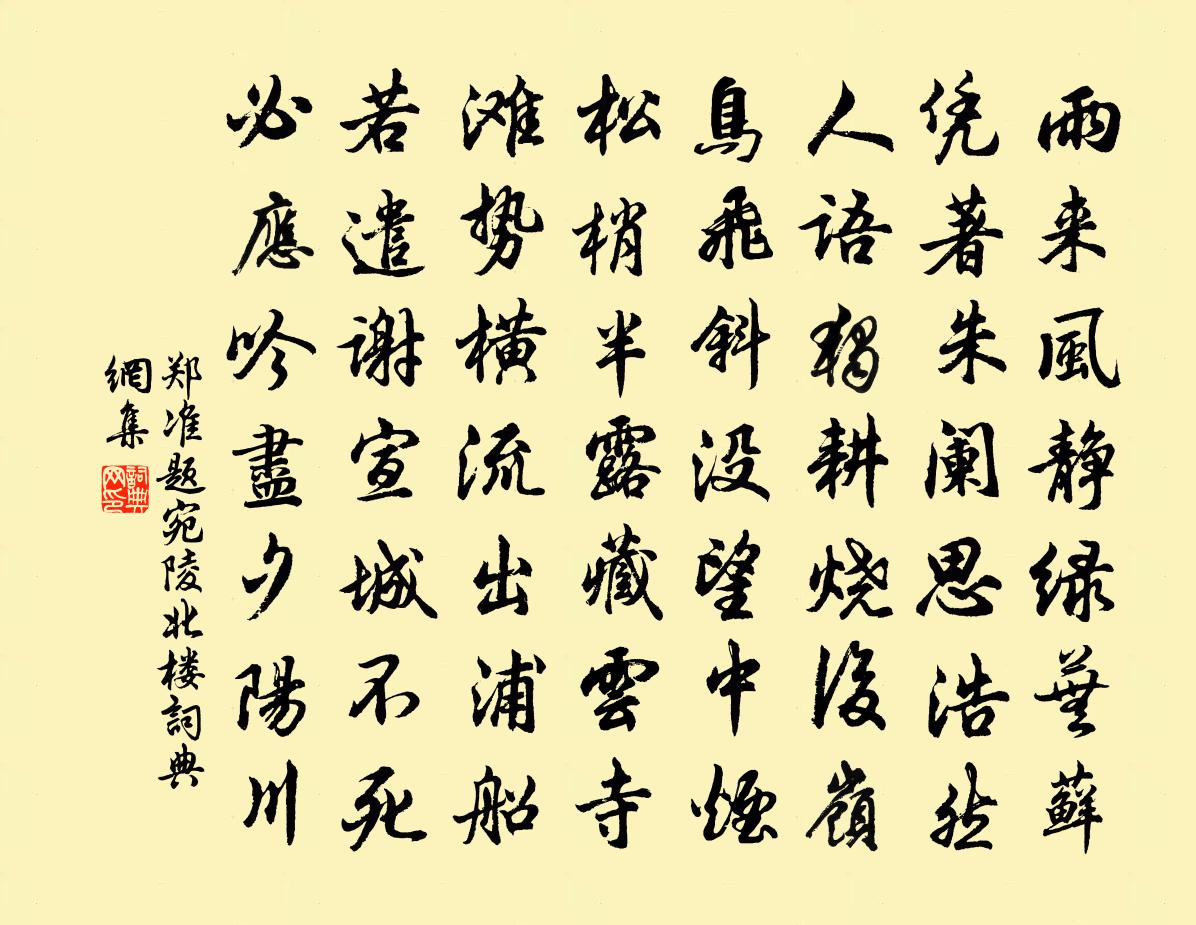 雨来風静绿蕪蘚
凭著朱阑思浩然
人語獨耕烧後嶺
鳥飛斜没望中煙
松梢半露藏雲寺
滩势横流出浦船
若遣谢宣城不死
必應吟盡夕陽川
郑准题宛陵北楼詞典
網集
詞典
网印